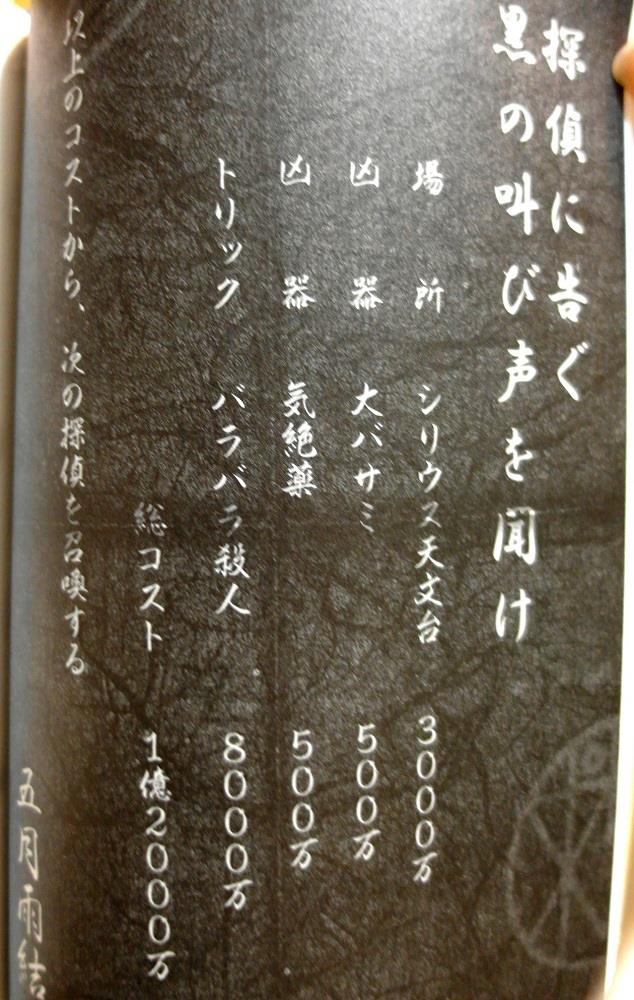 探偵に告ぐ
黒の叫び声を聞け
場所 シリウス天文台 3000万
凶器 大バサミ 500万
凶器 気絶薬 500万
トリック バラバラ殺人 8000万
総コスト 1億2000万
以上のコストから、次の探偵を召喚する
五月雨結